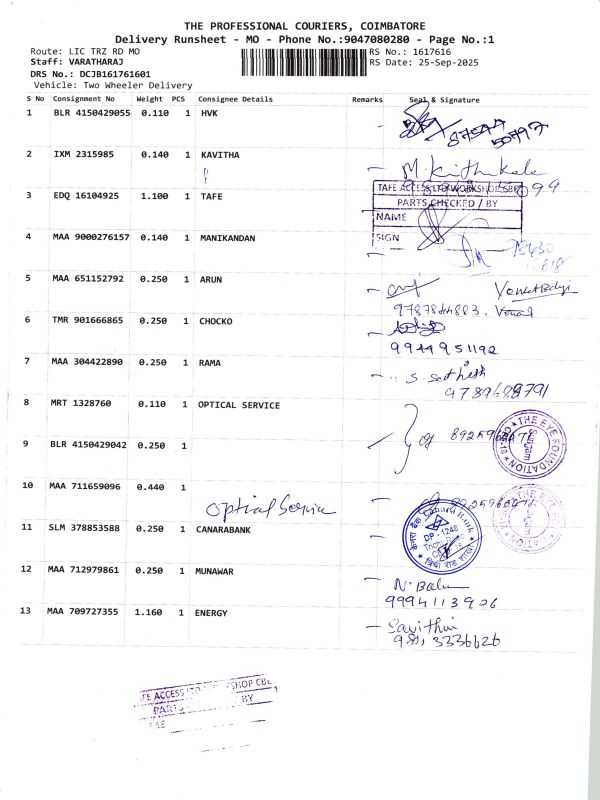 THE PROFESSIONAL COURIERS, COIMBATORE
Delivery Runsheet - MO - Phone No.:9047080280 - Page No.:1
Route: LIC TRZ RD MO
RS No.: 1617616
Staff: VARATHARAJ
RS Date: 25-Sep-2025
DRS No.: DCJB161761601
Vehicle: Two Wheeler Delivery
S No Consignment No Weight PCS Consignee Details Remarks Seal & Signature
1 BLR 4150429055 0.110 1 HVK
2 IXM 2315985 0.140 1 KAVITHA
3 EDQ 16104925 1.100 1 TAFE
TAFE ACCESS LTD WORKSHOP CBE
PARTS CHECKED / BY
NAME
SIGN
4 MAA 9000276157 0.140 1 MANIKANDAN
5 MAA 651152792 0.250 1 ARUN
6 TMR 901666865 0.250 1 CHOCKO
9944951192
7 MAA 304422890 0.250 1 RAMA
S. Sathesh
8 MRT 1328760 0.110 1 OPTICAL SERVICE
THE EYE FOUNDATION
9 BLR 4150429042 0.250 1
10 MAA 711659096 0.440 1
Optical Service
THE EYE FOUNDATION
11 SLM 378853588 0.250 1 CANARABANK
Canara Bank
DP - 1248
12 MAA 712979861 0.250 1 MUNAWAR
N. Balu
9994113906
13 MAA 709727355 1.160 1 ENERGY
Savithri
TAFE ACCESS LTD SHOP CBE
PARTS BY